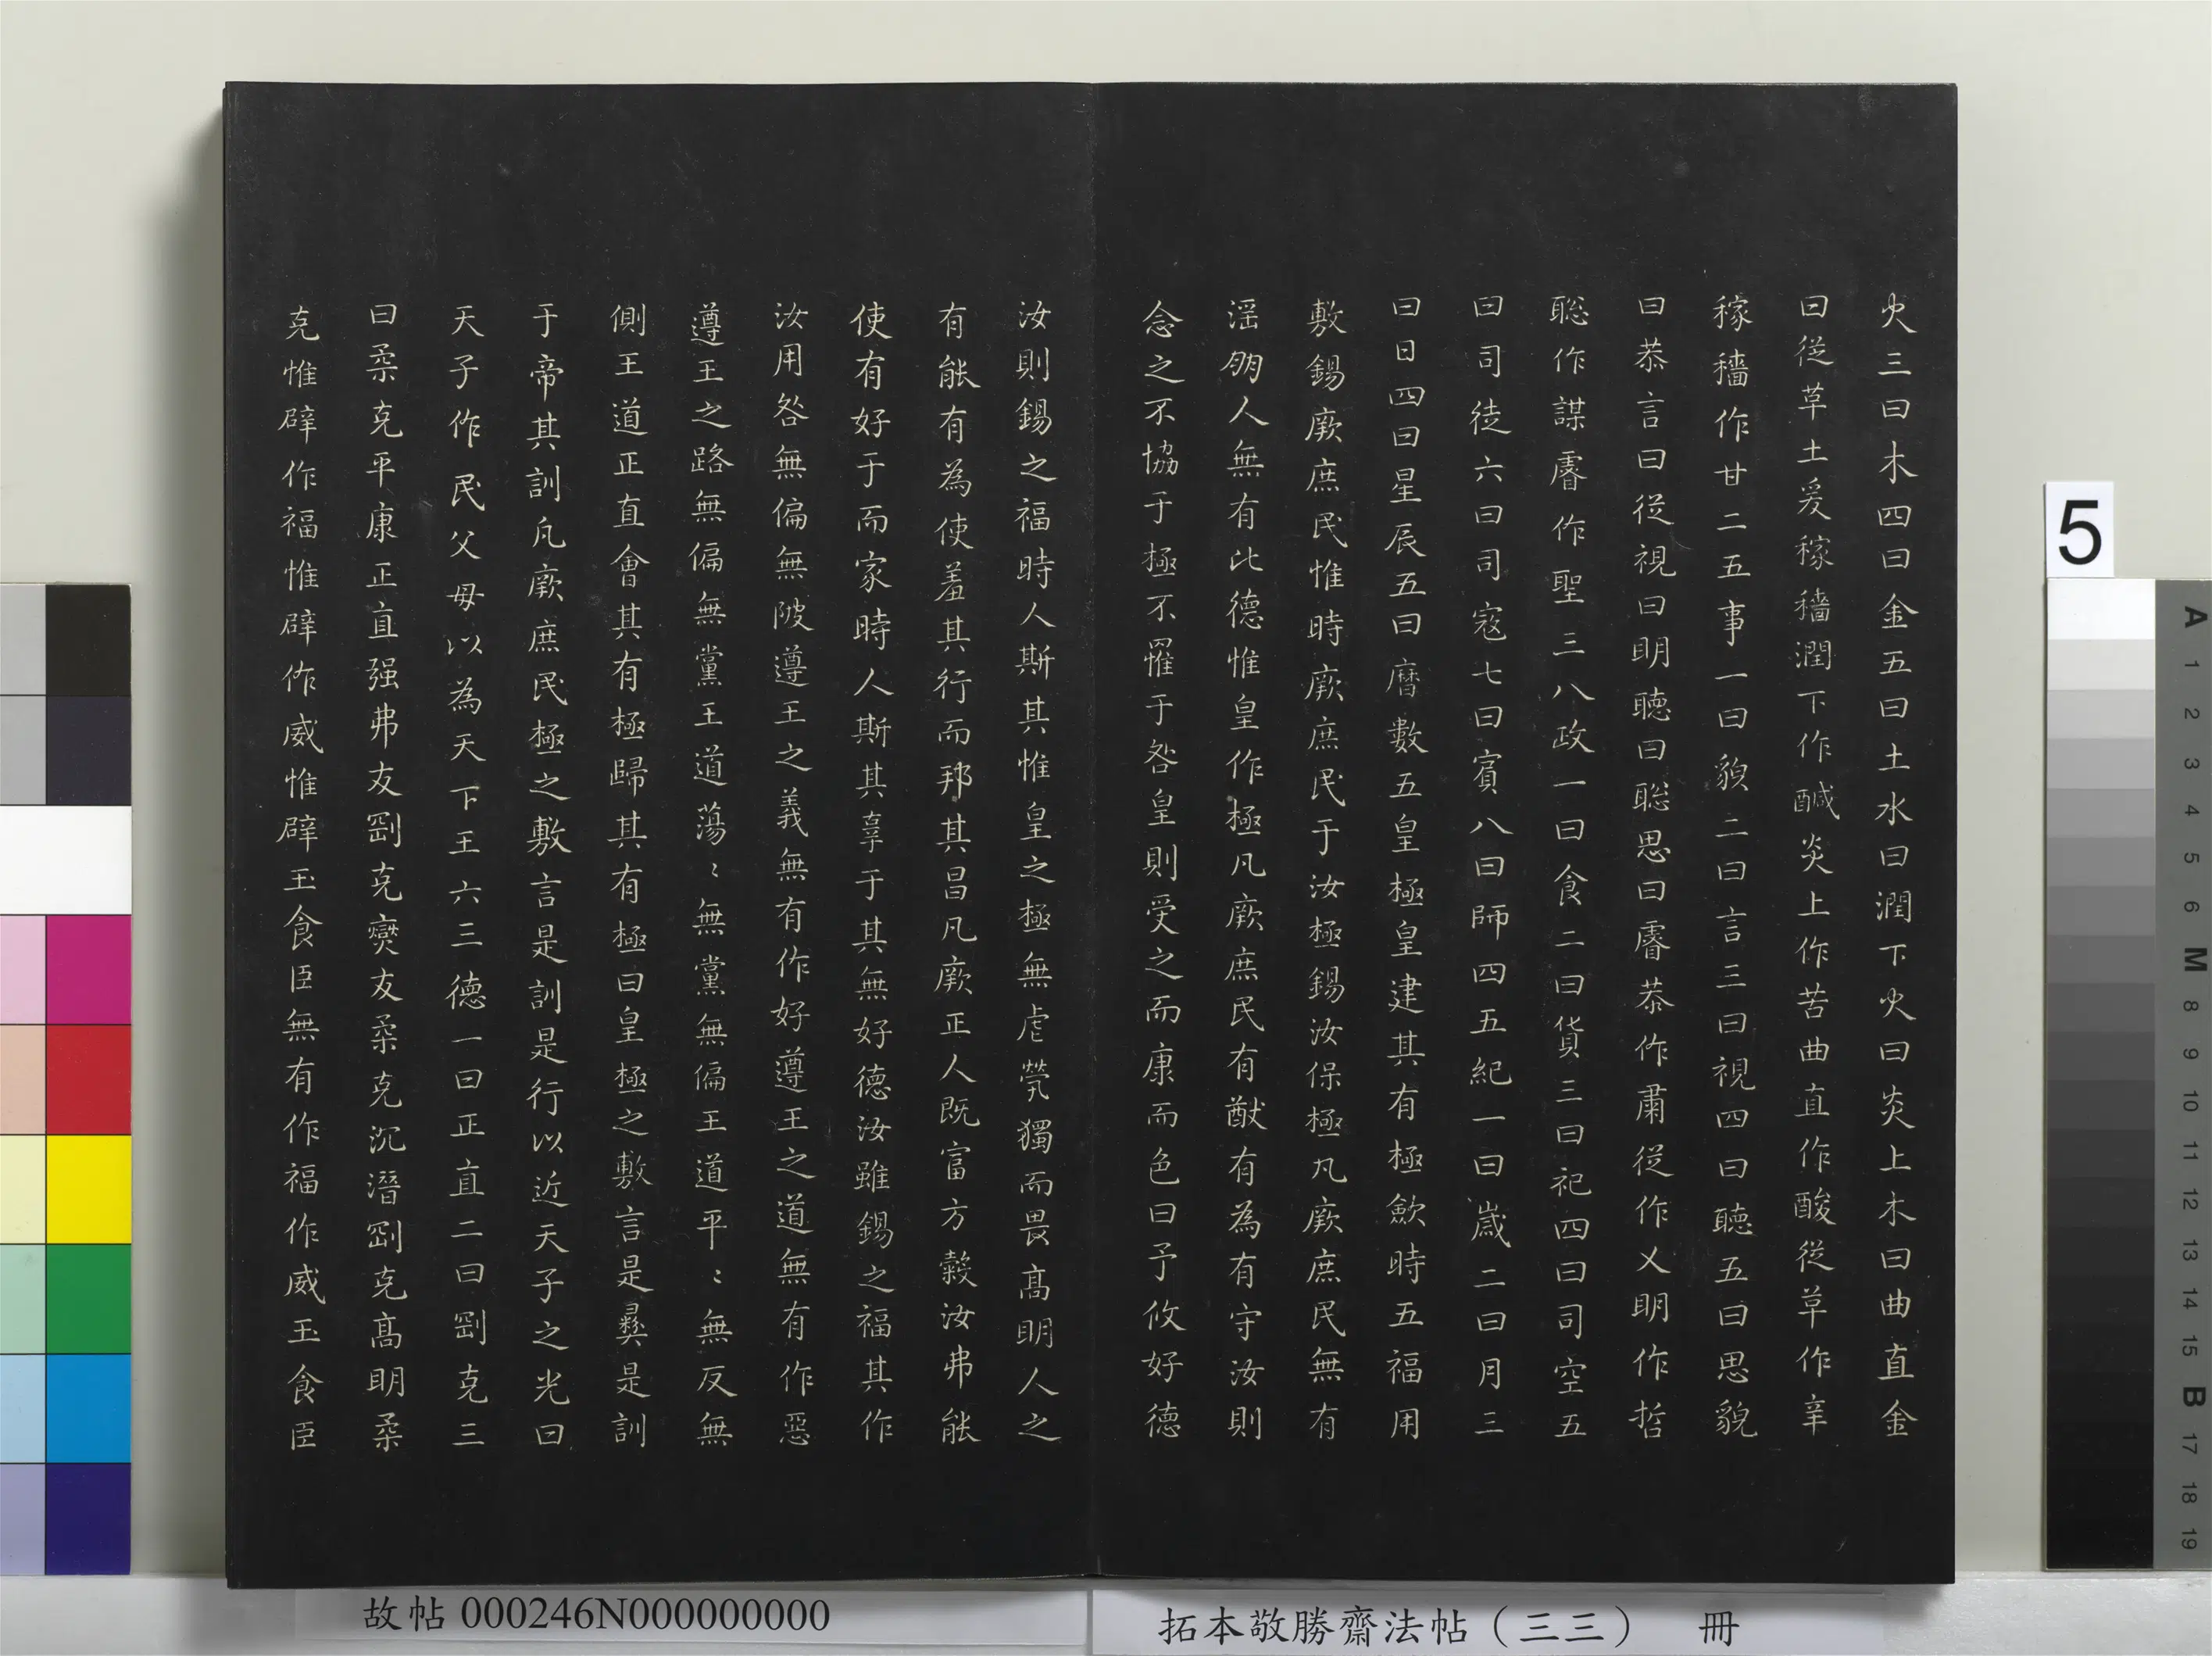 火三曰木四曰金五曰土水曰潤下火曰炎上木曰曲直金
曰從革土爰稼穡潤下作鹹炎上作苦曲直作酸從革作辛
稼穡作甘二五事一曰貌二曰言三曰視四曰聽五曰思貌
曰恭言曰從視曰明聽曰聰思曰睿恭作肅從作乂明作哲
聰作謀睿作聖三八政一曰食二曰貨三曰祀四曰司空五
曰司徒六曰司寇七曰賓八曰師四五紀一曰歲二曰月三
曰日四曰星辰五曰曆數五皇極皇建其有極斂時五福用
敷錫厥庶民惟時厥庶民于汝極錫汝保極凡厥庶民無有
淫朋人無有比德惟皇作極凡厥庶民有猷有為有守汝則
念之不協于極不罹于咎皇則受之而康而色曰予攸好德
汝則錫之福時人斯其惟皇之極無虐煢獨而畏高明人之
有能有為使羞其行而邦其昌凡厥正人既富方穀汝弗能
使有好于而家時人斯其辜于其無好德汝雖錫之福其作
汝用咎無偏無陂遵王之義無有作好遵王之道無有作惡
遵王之路無偏無黨王道蕩〻無黨無偏王道平〻無反無
側王道正直會其有極歸其有極曰皇極之敷言是彝是訓
于帝其訓凡厥庶民極之敷言是訓是行以近天子之光曰
天子作民父母以為天下王六三德一曰正直二曰剛克三
曰柔克平康正直强弗友剛克燮友柔克沉潛剛克高明柔
克惟辟作福惟辟作威惟辟玉食臣無有作福作威玉食臣
故帖 000246N000000000
拓本敬勝齋法帖（三三） 冊
5
A
1
2
3
4
5
6
M
8
9
10
11
12
13
14
15
B
17
18
19